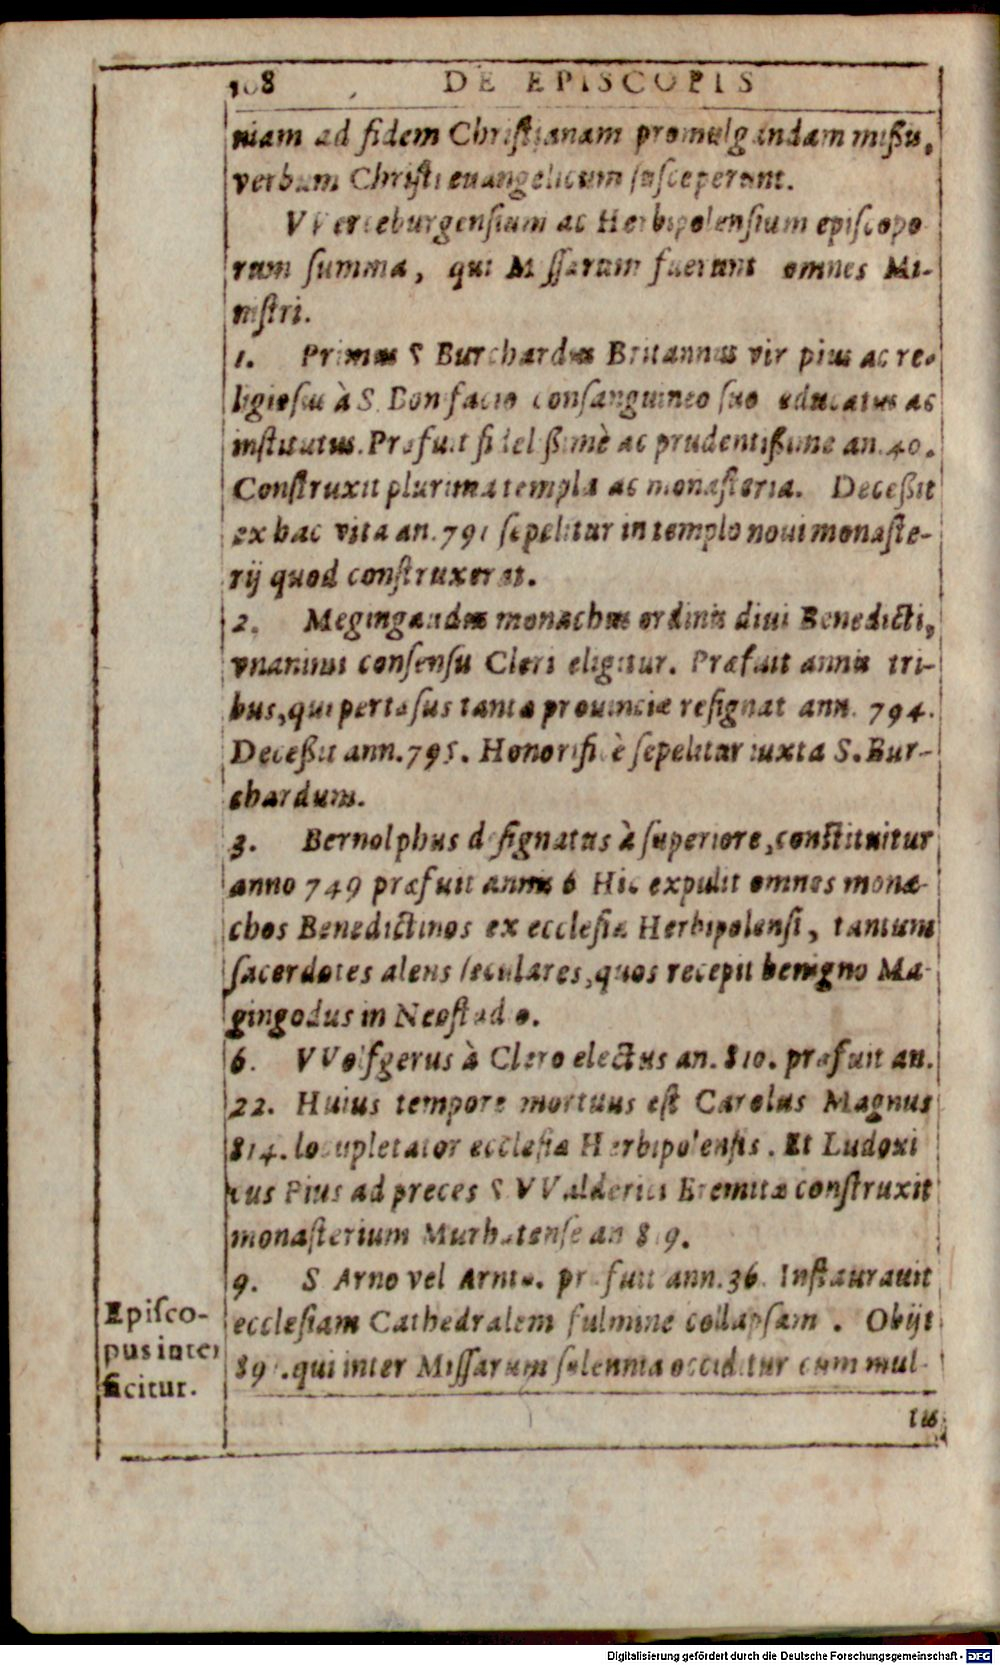 108 DE EPISCOPIS
niam ad fidem Christianam promulgandam mißus,
verbum Christi euangelicum susceperunt.
VVerceburgensium ac Herbipolensium episcopo
rum summa, qui Missarum fuerunt omnes Mi-
nistri.
1. Primus S Burchardus Britannus vir pius ac re-
ligiosus à S. Bonifacio consanguineo suo educatus ac
institutus. Præfuit fidelißimè ac prudentißime an. 40.
Construxit plurima templa ac monasteria. Deceßit
ex hac vita an. 791 sepelitur in templo noui monaste-
rij quod construxerat.
2. Megingaudus monachus ordinis diui Benedicti,
vnanimi consensu Cleri eligitur. Præfuit annis tri-
bus, qui pertæsus tantæ prouinciæ resignat ann. 794.
Deceßit ann. 795. Honorificè sepelitur iuxta S. Bur-
chardum.
3. Bernolphus designatus à superiore, constituitur
anno 749 præfuit annis 6 Hic expulit omnes mona-
chos Benedictinos ex ecclesia Herbipolensi, tantum
sacerdotes alens seculares, quos recepit benigno Ma-
gingodus in Neostadio.
6. VVolfgerus à Clero electus an. 810. præfuit an.
22. Huius tempore mortuus est Carolus Magnus
814. locupletator ecclesiæ Herbipolensis. Et Ludoui
cus Pius ad preces S. VValderici Eremitæ construxit
monasterium Murhatense an 819.
9. S Arno vel Arnta. præfuit ann. 36. Instaurauit
ecclesiam Cathedralem fulmine collapsam. Obijt
89 . qui inter Missarum solennia occiditur cum mul-
Episco-
pus inter
ficitur.
tis